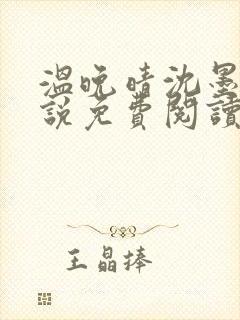 温晚晴沈墨
說免費閱讀
王晶捧